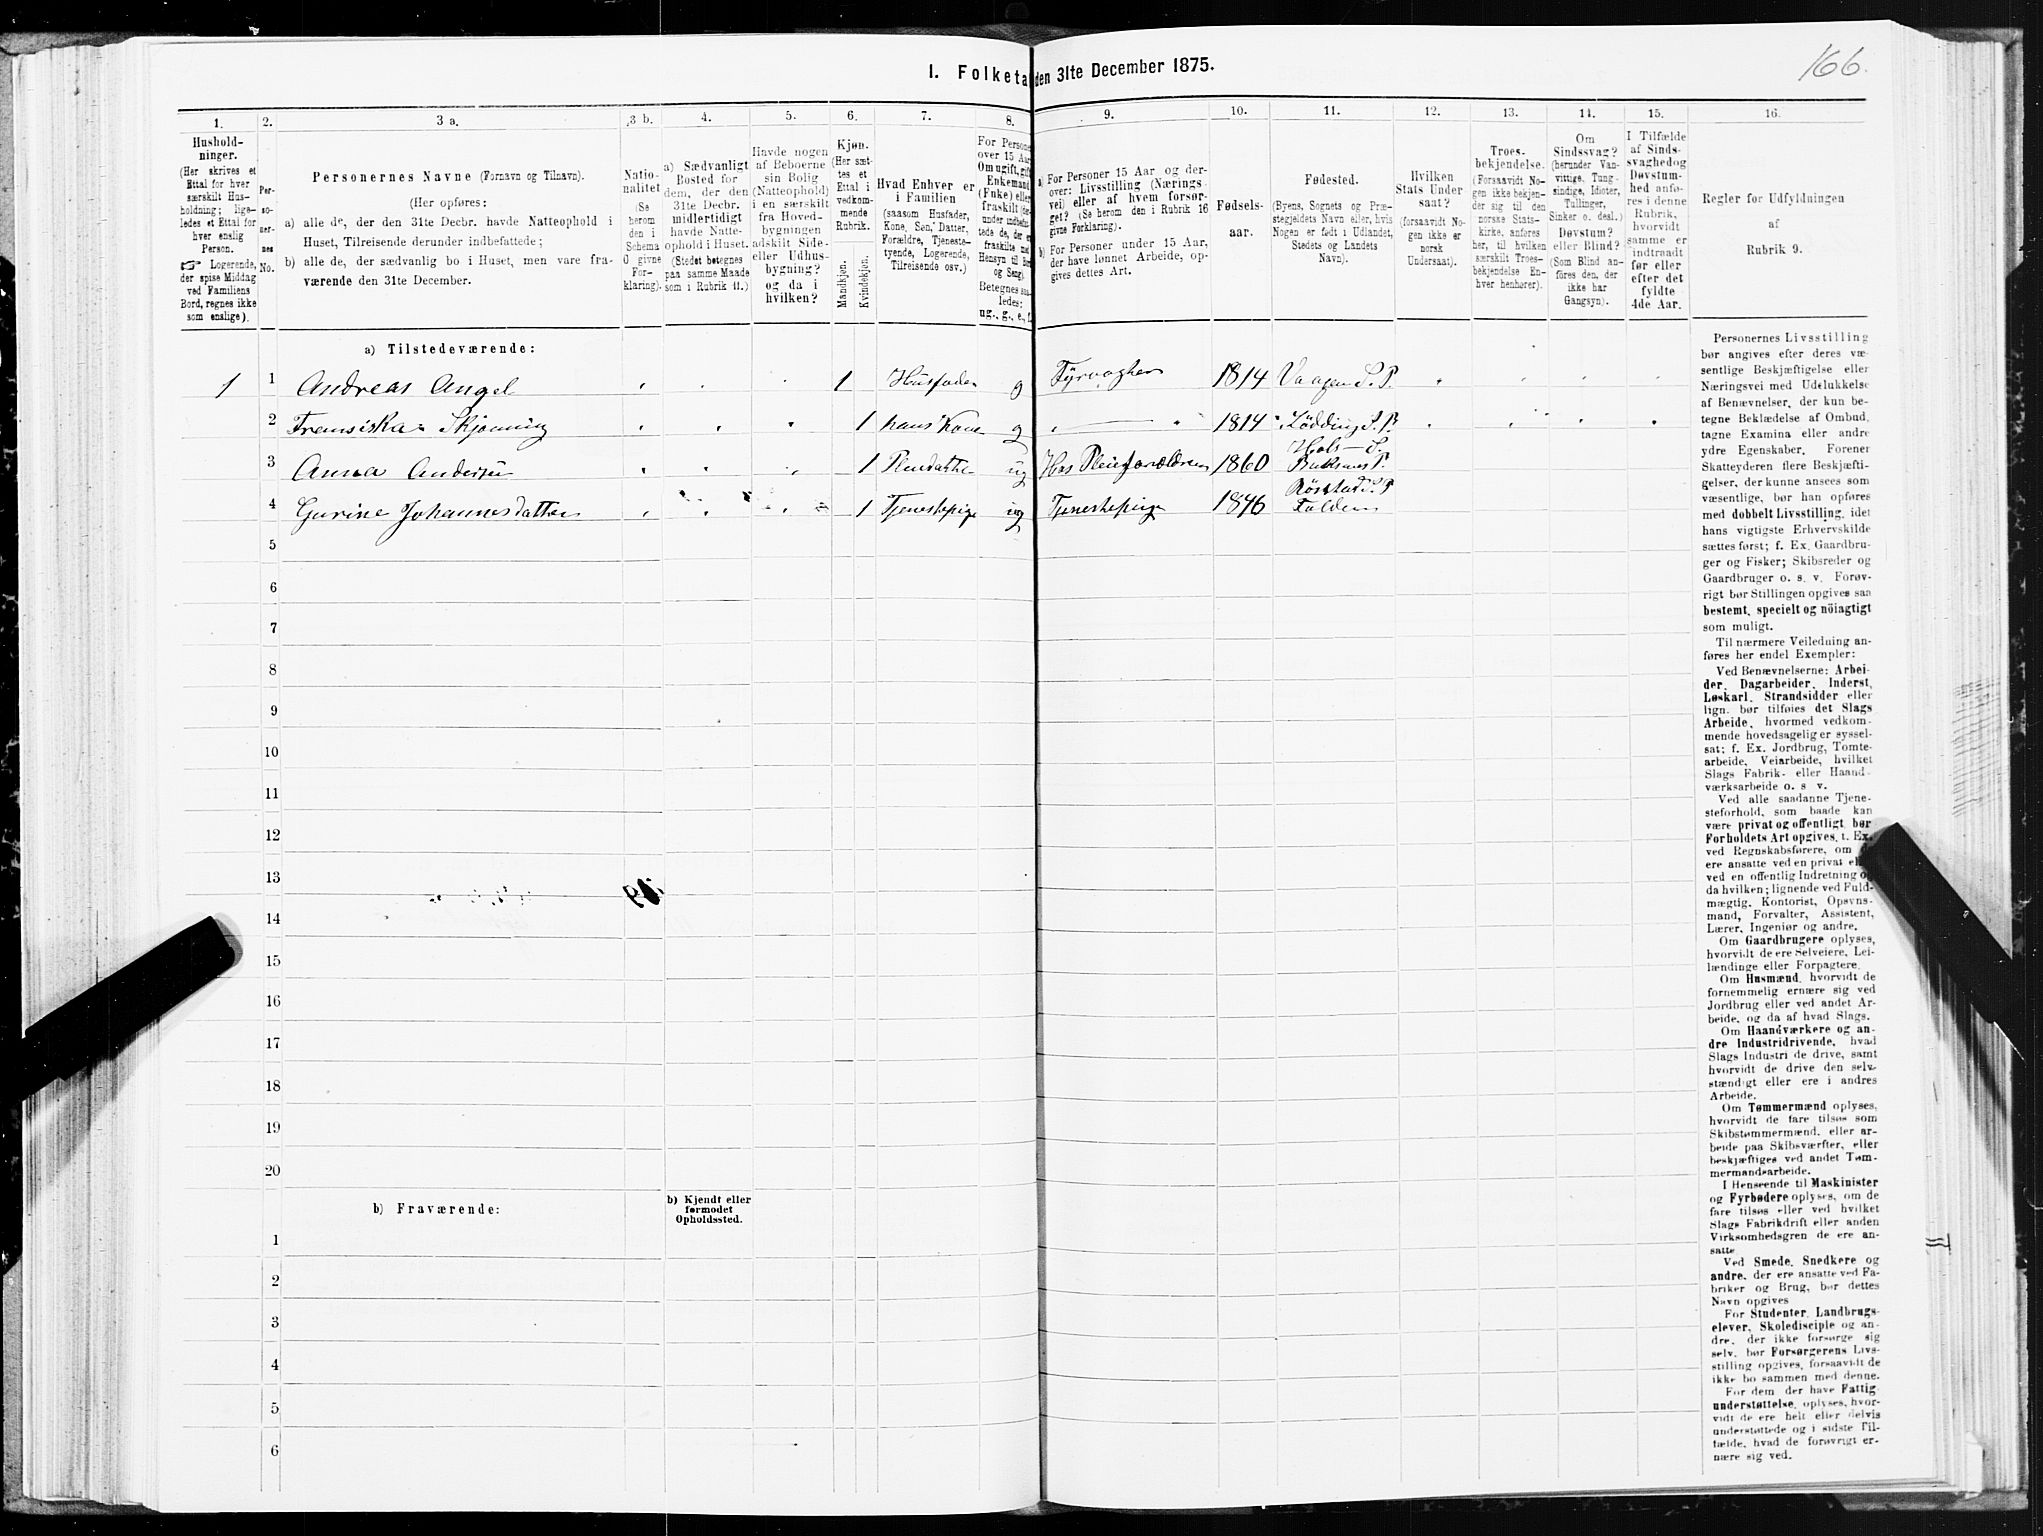 166.
I. Folketa den 31te December 1875.
1.
Hushold-
ninger.
(Her skrives et
Ettal for hver
særskilt Hus-
holdning; lige-
ledes et Ettal for
hver enslig
Person.
☞ Logerende,
der spise Middag
ved Familiens
Bord, regnes ikke
som enslige).
2.
Per-
so-
ner-
nes
No.
3 a.
Personernes Navne (Fornavn og Tilnavn).
(Her opføres:
a) alle de, der den 31te Decbr. havde Natteophold i
Huset, Tilreisende derunder indbefattede;
b) alle de, der sædvanlig bo i Huset, men vare fra-
værende den 31te December.
3 b.
Natio-
nalitet
(Se
herom
den i
Schema
O givne
For-
klaring).
4.
a) Sædvanligt
Bosted for
dem, der den
31te Decbr.
midlertidigt
havde Natte-
ophold i Huset.
(Stedet betegnes
paa samme Maade
som i Rubrik 11.)
5.
Havde nogen
af Beboerne
sin Bolig
(Natteophold)
i en særskilt
fra Hoved-
bygningen
adskilt Side-
eller Udhus-
bygning?
og da i
hvilken?
6.
Kjøn.
(Her sæt-
tes et
Ettal i
vedkom-
mende
Rubrik.
Mandkjøn.
Kvindekjøn.
7.
Hvad Enhver er
i Familien
(saasom Husfader,
Kone, Søn, Datter,
Forældre, Tjeneste-
tyende, Logerende,
Tilreisende osv.)
8.
For Persone
over 15 Aar
Om ugift, gift
Enkemand
(Enke) elle
fraskilt
Betegnes saa-
ledes:
ug., g., e., f.
9.
a) For Personer 15 Aar og der-
over: Livsstilling (Nærings-
vei) eller af hvem forsør-
get? (Se herom den i Rubrik 16
givne Forklaring).
b) For Personer under 15 Aar,
der have lønnet Arbeide, op-
gives dettes Art.
10.
Fødsels-
aar.
11.
Fødested.
(Byens, Sognets og Præ-
stegjeldets Navn eller, hvis
Nogen er født i Udlandet,
Stedets og Landets
Navn).
12.
Hvilken
Stats Under
saat?
(forsaavidt No-
gen ikke er
norsk
Undersaat).
13.
Troes-
bekjendelse.
(Forsaavidt No-
gen ikke bekjen-
der sig til den
norske Stats-
kirke, anføres
her, til hvilken
særskilt Troes-
bekjendelse En-
hver henhører).
14.
Om
Sindssvag?
(herunder Van-
vittige, Tung-
sindige, Idioter,
Tullinger,
Sinker o. desl.)
Døvstum?
eller Blind?
(Som Blind an-
føres den, der
ikke har
Gangsyn).
15.
I Tilfælde
af Sinds-
svaghed og
Døvstum-
hed anfø-
res i denne
Rubrik,
hvorvidt
samme er
indtraadt
før eller
efter det
fyldte
4de Aar.
16.
Regler for Udfyldningen
af
Rubrik 9.
a) Tilstedeværende:
1 1 Andreas Angel 1 Husfader g Fyrvogter 1814 Vaagen S. P.
2 Fransiska Skjønning 1 hans Kone g 1814 Lødding S. P.
3 Anna Andersen 1 Pleiedatter ug Hos Pleieforældrene 1860 Hols S. Buksnes P.
4 Gurine Johannesdatter 1 Tjenestepige ug Tjenestepige 1846 S. P Folden
5
6
7
8
9
10
11
12
13
14
15
16
17
18
19
20
b) Fraværende:
b) Kjendt eller
formodet
Opholdssted.
1
2
3
4
5
6
Personernes Livsstilling
bør angives efter deres væ-
sentlige Beskjæftigelse eller
Næringsvei med Udelukkelse
af Benævnelser, der kun be-
tegne Beklædelse af Ombud,
tagne Examina eller andre
ydre Egenskaber. Forener
Skatteyderen flere Beskjæfti-
gelser, der kunne ansees som
væsentlige, bør han opføres
med dobbelt Livsstilling, idet
hans vigtigste Erhvervskilde
sættes først; f. Ex. Gaardbru-
ger og Fisker; Skibsreder og
Gaardbruger o. s. v. Forøv-
rigt bør Stillingen opgives saa
bestemt, specielt og nöiagtigt
som muligt.
Til nærmere Veiledning an-
føres her endel Exempler:
Ved Benævnelserne: Arbei-
der, Dagarbeider, Inderst,
Løskarl, Strandsidder eller
lign. bør tilføies det Slags
Arbeide, hvormed vedkom-
mende hovedsagelig er syssel-
sat; f. Ex. Jordbrug, Tomte-
arbeide, Veiarbeide, hvilket
Slags Fabrik- eller Haand-
værksarbeide o. s v.
Ved alle saadanne Tjene-
steforhold, som baade kan
være privat og offentligt, bør
Forholdets Art opgives, f. Ex.
ved Regnskabsførere, om
ere ansatte ved en privat
ved en offentlig Indretning
da hvilken; lignende ved Fuld-
mægtig, Kontorist, Opsyns-
mand, Forvalter, Assistent,
Lærer, Ingeniør og andre.
Om Gaardbrugere oplyses,
hvorvidt de ere Selveiere, Lei-
lændinge eller Forpagtere.
Om Husmænd, hvorvidt de
fornemmelig ernære sig ved
Jordbrug eller ved andet Ar-
beide, og da af hvad Slags.
Om Haandværkere og an-
dre Industridrivende, hvad
Slags Industri de drive, samt
hvorvidt de drive den selv-
stændigt eller ere i andres
Arbeide.
Om Tømmermænd oplyses,
hvorvidt de fare tilsøs som
Skibstømmermænd, eller ar-
beide paa Skibsværfter, eller
beskjæftiges ved andet Tøm-
mermandsarbeide.
I Henseende til Maskinister
og Fyrbødere oplyses, om de
fare tilsøs eller ved hvilket
Slags Fabrikdrift eller anden
Virksomhedsgren de ere an-
satte.
Ved Smede, Snedkere og
andre, der ere ansatte ved Fa-
briker og Brug, bør dettes
Navn opgives
For Studenter, Landbrugs-
elever, Skoledisciple og an-
dre, der ikke forsørge sig
selv, bør Forsørgerens Livs-
stilling opgives, forsaavidt de
ikke bo sammen med denne.
For dem, der have Fattig-
understøttelse, oplyses, hvor-
vidt de ere helt eller delvis
understøttede og i sidste Til-
fælde, hvad de forøvrigt er-
nære sig ved.